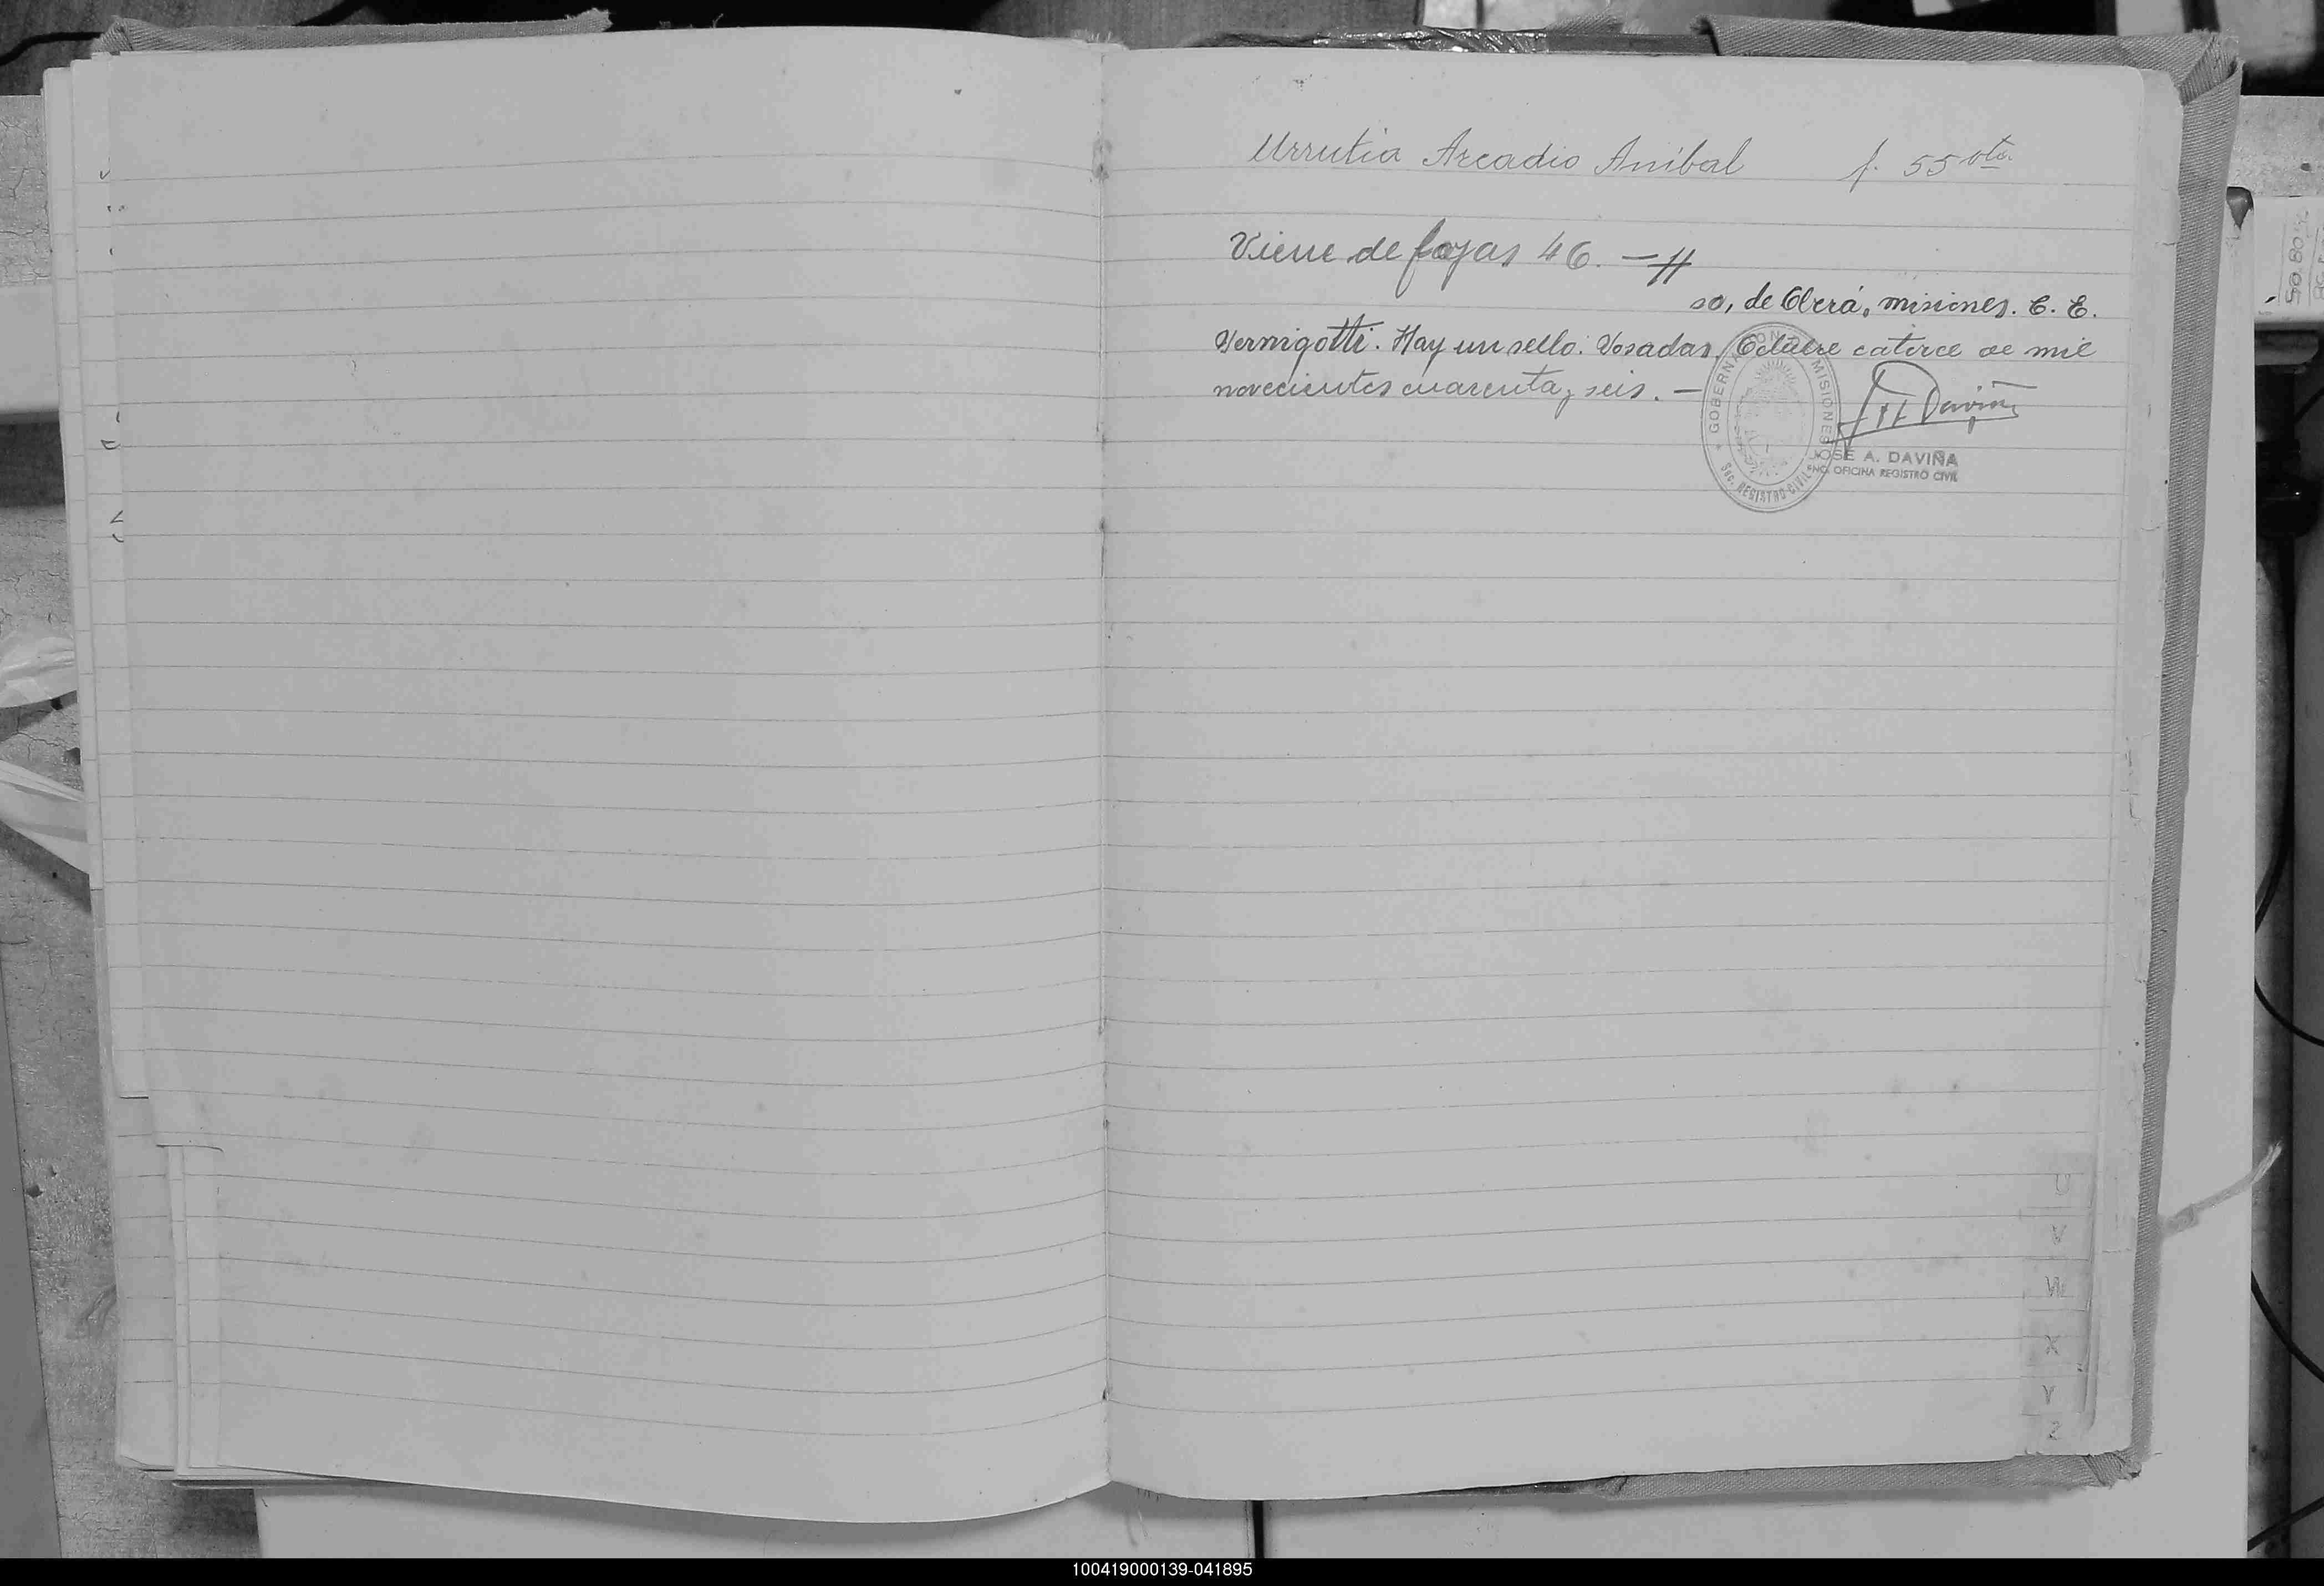 Urrutia Arcadio Anibal f. 55 vta
Viene de fojas 46. —//
so, de Oberá, misiones. C. E.
Vernigotti. Hay un sello. Posadas, Octubre catorce de mil
novecientos cuarenta y seis. —
GOBERNACION MISIONES
Sec. REGISTRO CIVIL
JOSE A. DAVIÑA
ENC. OFICINA REGISTRO CIVIL
U
V
W
X
Y
Z
100419000139-041895